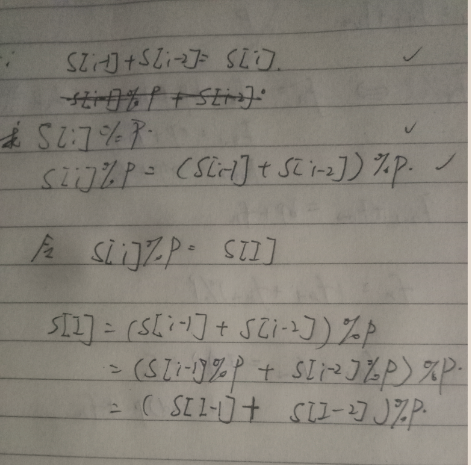 S[i-1]+S[i-2]= S[i]. ✓
S[i-1]%P + S[i-2].
求 S[i]%P. ✓
S[i]%P = (S[i-1] + S[i-2])%P. ✓
S[i]%P = S[I]
S[I] = (S[i-1] + S[i-2])%P
= (S[i-1]%P + S[i-2]%P)%P.
= (S[I-1] + S[I-2])%P.